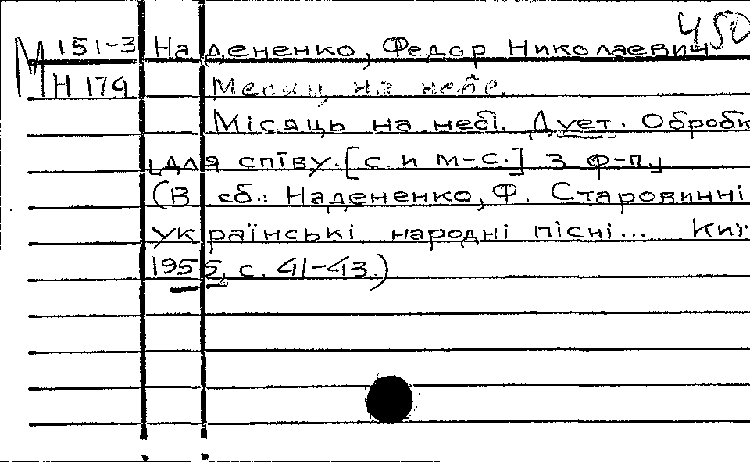 450
М 151-3 Надененко, Федор Николаевич
Н 179 Месяц на небе.
Місяць на небі. Дует. Обробк
для співу [с. и м-с.] з ф-п.
(В сб.: Надененко, Ф. Старовинні
українські народні пісні... Київ
1955, с. 41-43.)